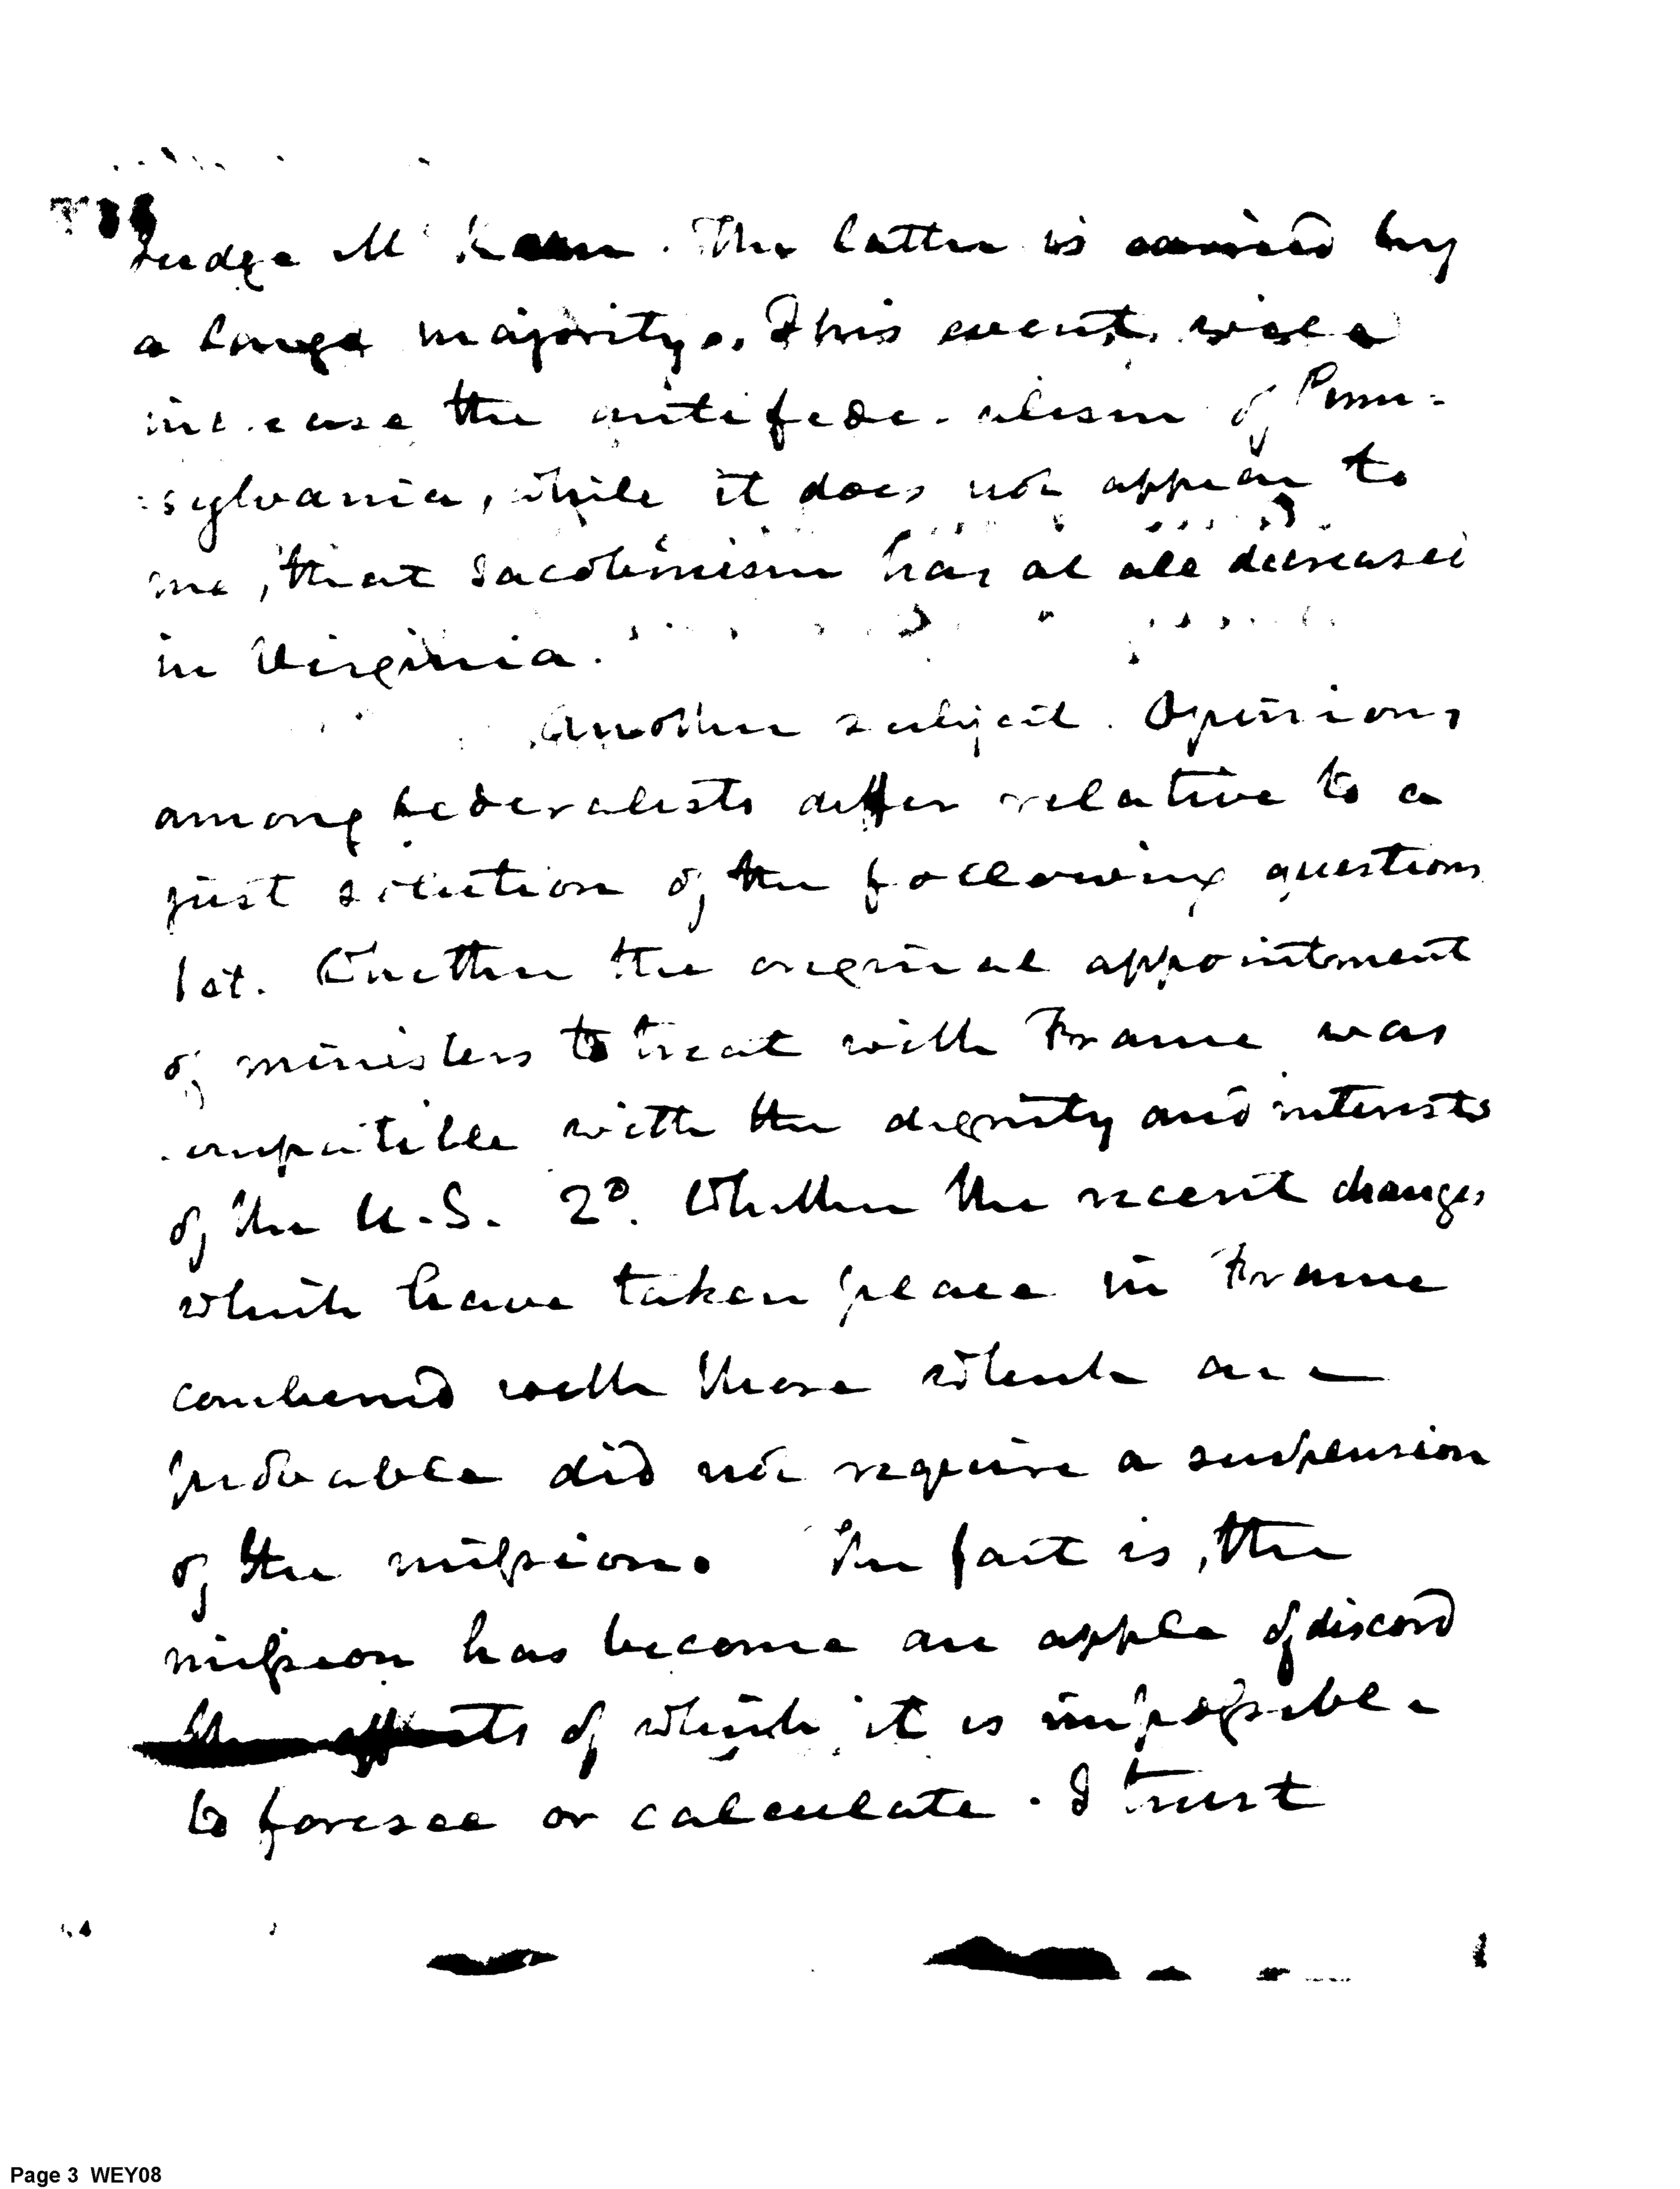 Judge McKean. The latter is carried by
a large majority. This event will
increase the antifederalism of Penn=
=sylvania, while it does not appear to
me, that Jacobinism has at all decreased
in Virginia.
Another subject. Opinions
among Federalists differ relative to a
just solution of the following questions
1st. Whether the original appointment
of ministers to treat with France was
compatible with the dignity and interests
of the U.S. 2d. Whether the recent changes
which have taken place in France
combined with those which are
probable did not require a suspension
of the mission. The fact is, the
mission has become an apple of discord
the effects of which it is impossible
to foresee or calculate. I trust
Page 3 WEY08